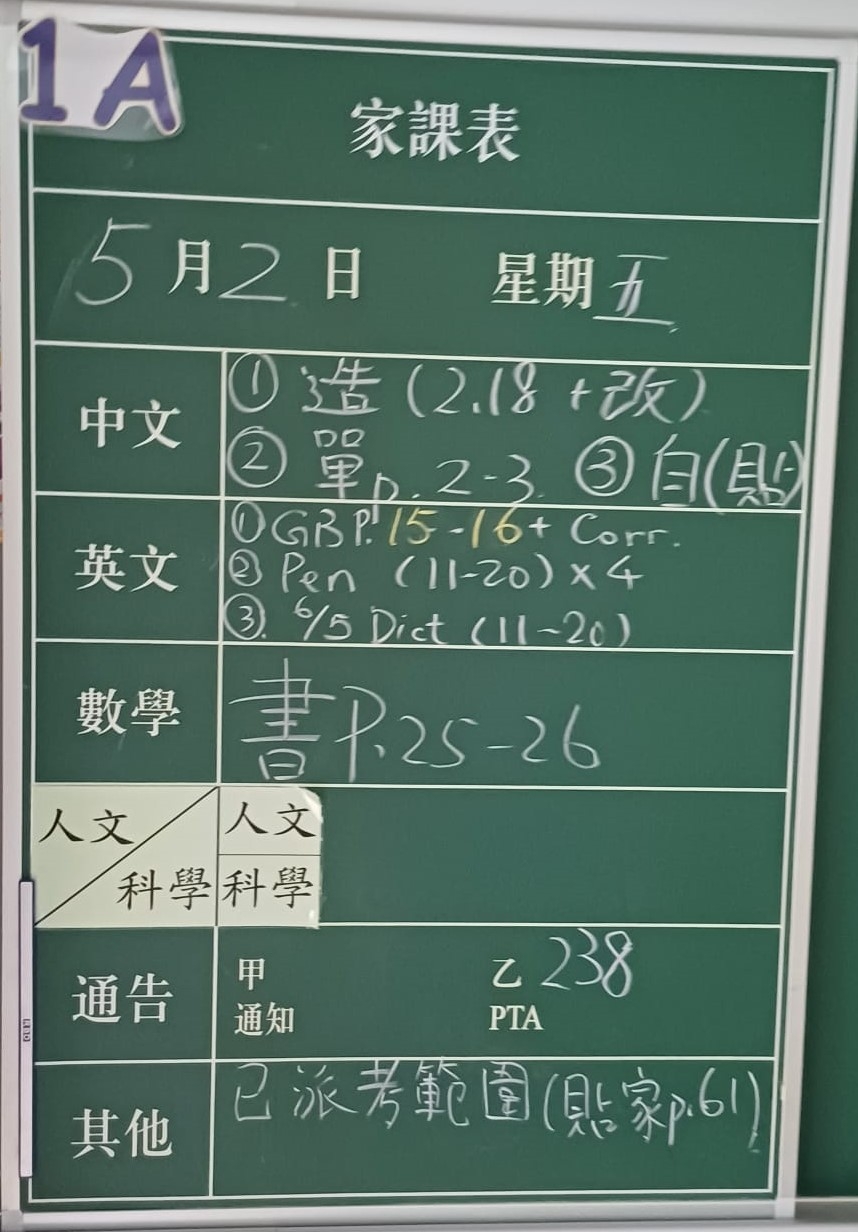 1A
家課表
5月2日 星期五
中文
① 造 (2.18 + 改)
② 單 p. 2-3 ③ 自(貼)
英文
① GB P. 15-16 + Corr.
② Pen (11-20) x 4
③. 6/5 Dict (11-20)
數學
書 P. 25-26
人文 人文
科學 科學
通告
甲 乙 238
通知 PTA
其他
已派考範圍(貼家p.61)